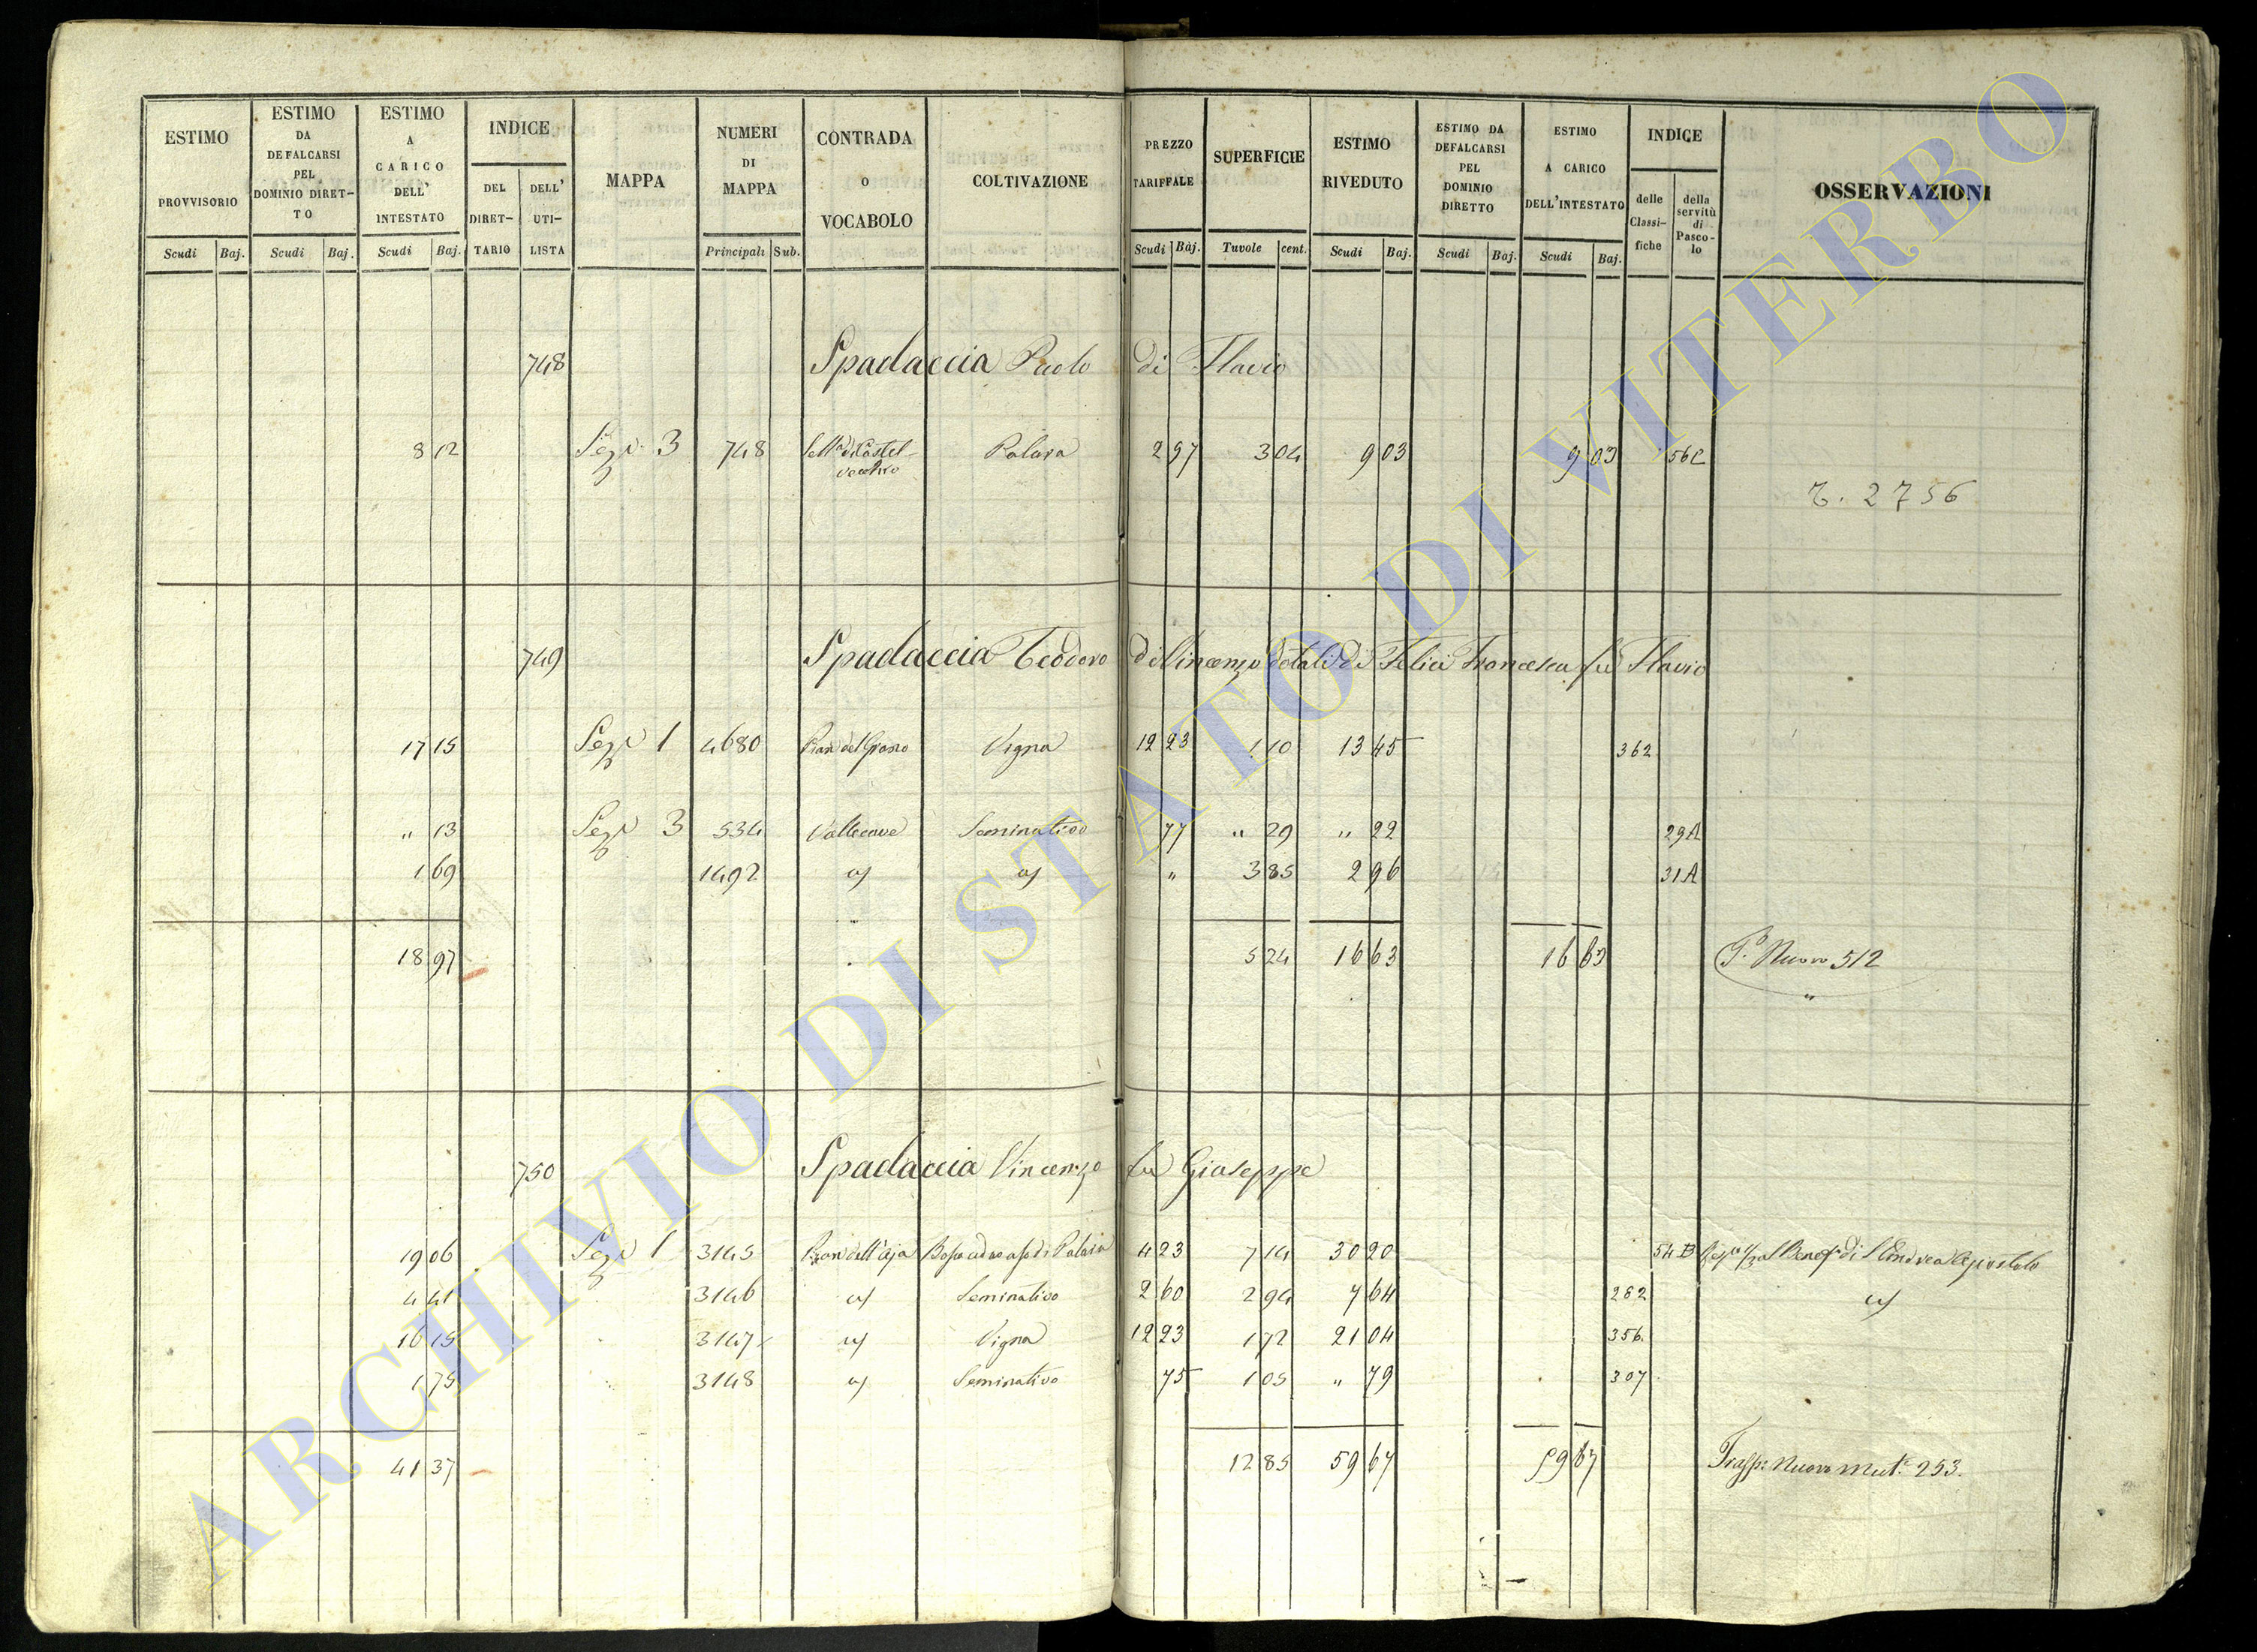 ESTIMO PROVVISORIO
ESTIMO DA DEFALCARSI PEL DOMINIO DIRET-TO
ESTIMO A CARICO DELL' INTESTATO
INDICE
DEL DIRET-TARIO
DELL' UTI-LISTA
MAPPA
NUMERI DI MAPPA
CONTRADA O VOCABOLO
COLTIVAZIONE
PREZZO TARIFFALE
SUPERFICIE
ESTIMO RIVEDUTO
ESTIMO DA DEFALCARSI PEL DOMINIO DIRETTO
ESTIMO A CARICO DELL'INTESTATO
INDICE
delle Classi-fiche
della servitù di Pasco-lo
OSSERVAZIONI
Scudi Baj. Scudi Baj. Scudi Baj. Principali Sub. Scudi Baj. Tavole cent. Scudi Baj. Scudi Baj. Scudi Baj.
748 Spadaccia Paolo di Flavio
8 12 Sez. 3 748 di Castel-vecchio Palara 2 97 3 04 9 03 9 03 56C
2756
749 Spadaccia Teodoro di Vincenzo dotali di Felici Francesca fu Flavio
17 15 Sez. 1 4680 Pian del Grano Vigna 12 23 1 10 13 45 362
" 13 Sez. 3 534 Vallecave Seminativo 77 " 29 " 22 29A
1 69 1492 " 3 85 2 96 31A
18 97 5 24 16 63 16 63 Nuovo 512
"
750 Spadaccia Vincenzo fu Giuseppe
19 06 Sez. 1 3145 Pian dell'aja di Palara 4 23 7 14 30 20 54 B di S. Andrea Apostolo
4 41 3146 Seminativo 2 60 2 94 7 64 282
16 15 3147 Vigna 12 23 1 72 21 04 356
1 75 3148 Seminativo 75 1 05 " 79 307
41 37 12 85 59 67 59 67 Trasp: Nuovo Mut. 253.
ARCHIVIO DI STATO DI VITERBO